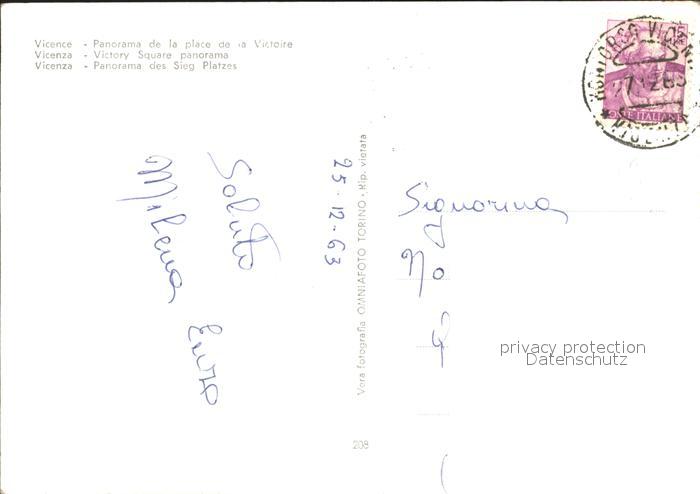 Vicence - Panorama de la place de la Victoire
Vicenza - Victory Square panorama
Vicenza - Panorama des Sieg Platzes
25-12-63
Saluto
Milena Enzo
Vera fotografia OMNIAFOTO TORINO - Rip. vietata
208
POSTE ITALIANE
Signorina
No
privacy protection
Datenschutz